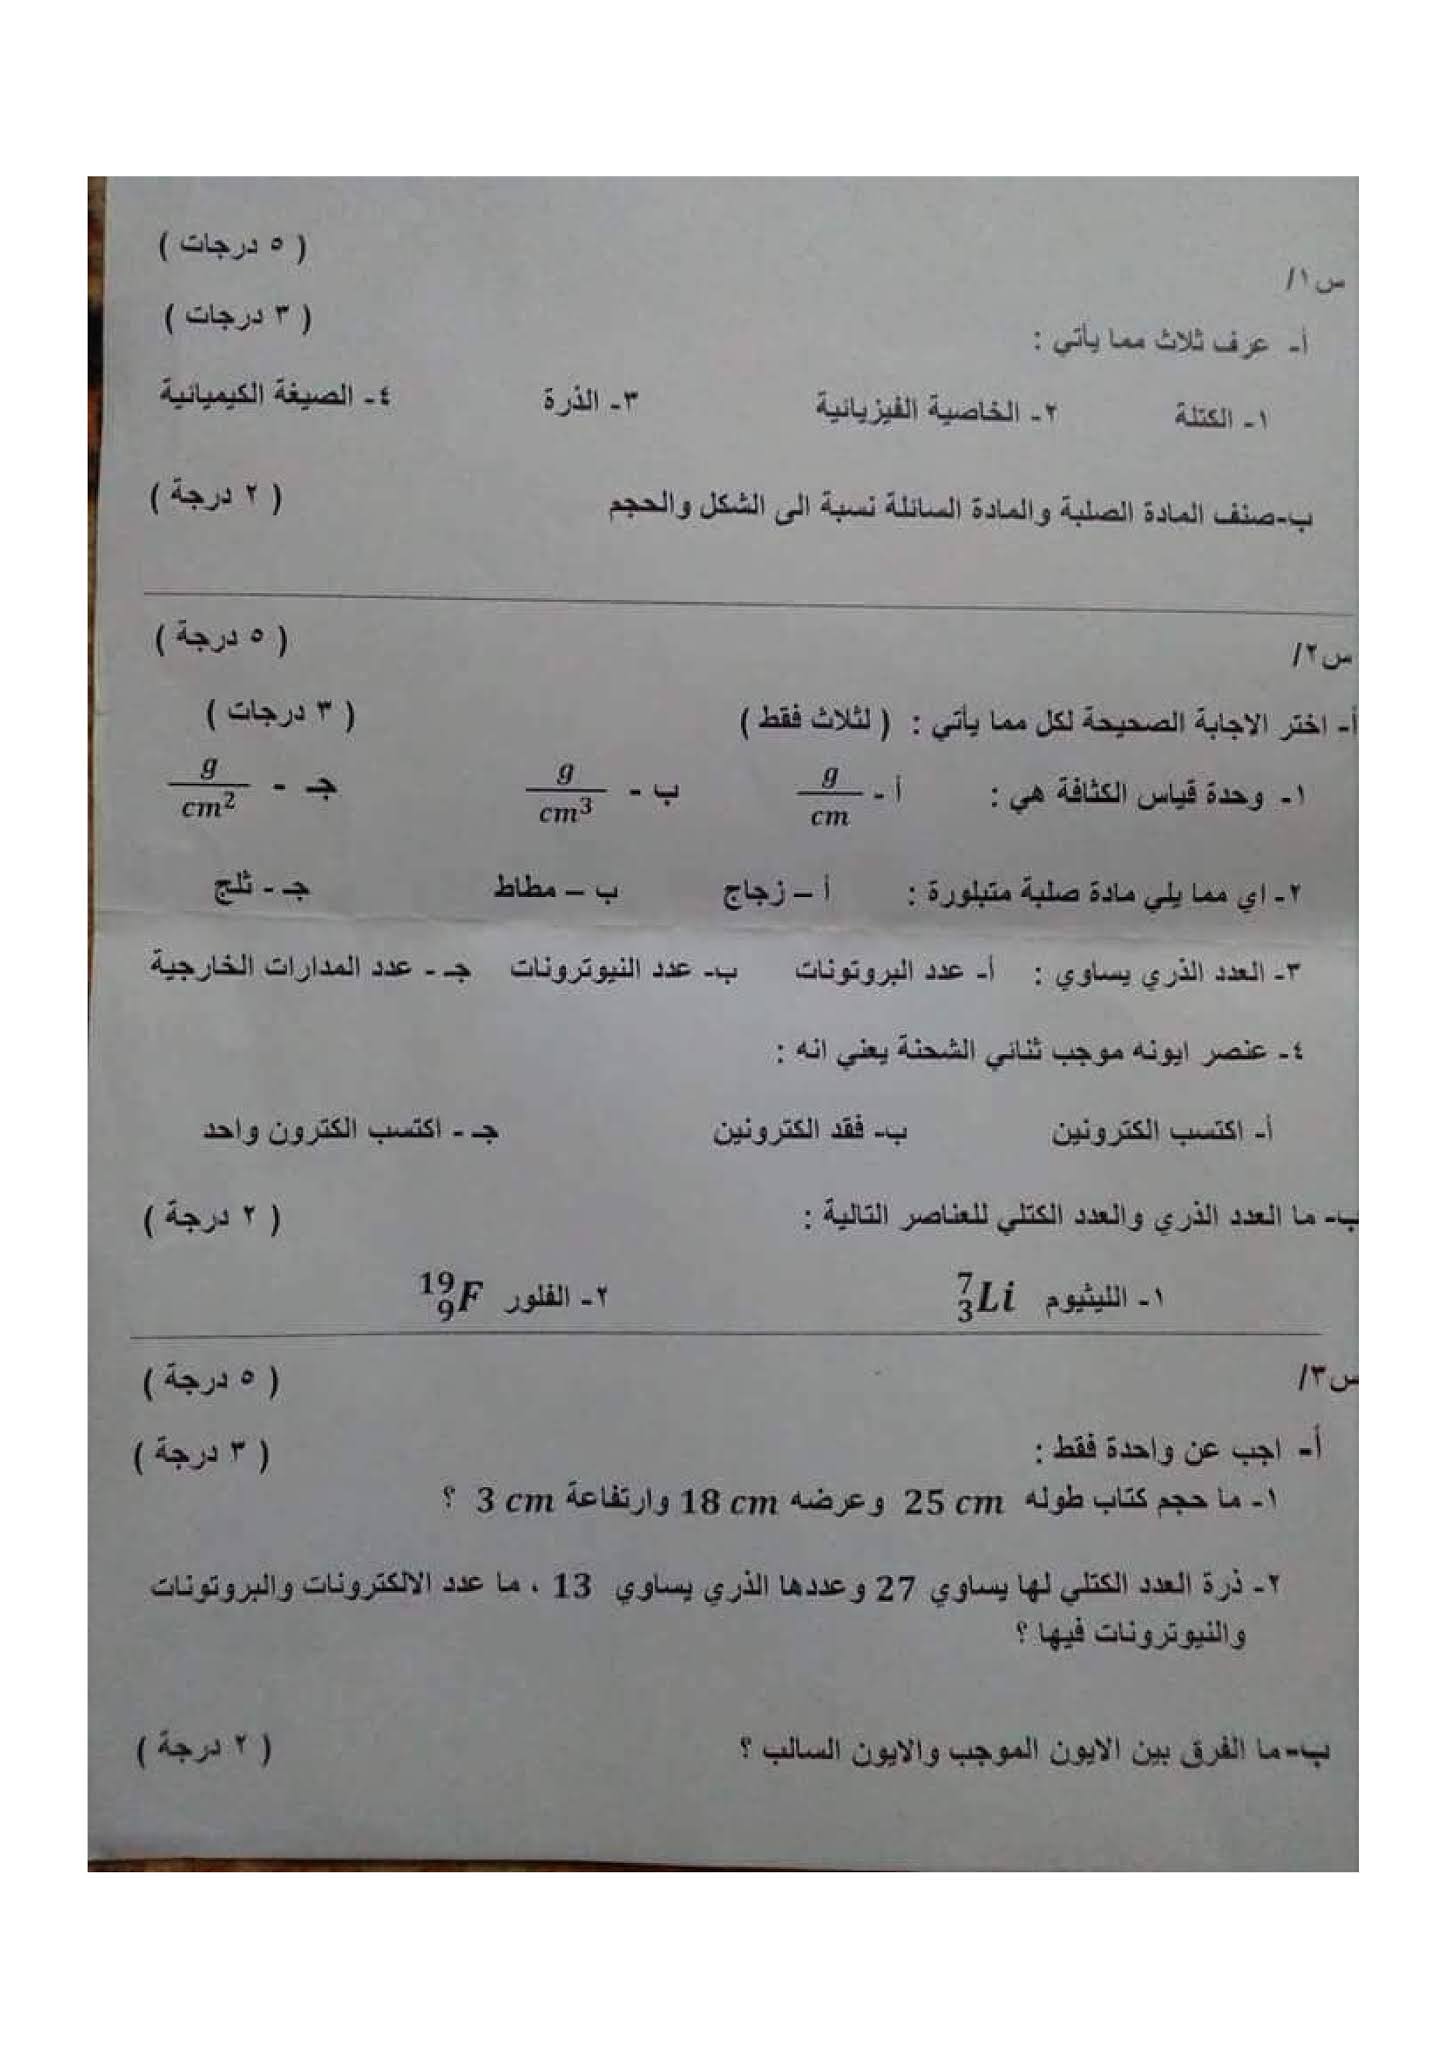 س١/ ( ٥ درجات )
أ- عرف ثلاث مما يأتي : ( ٣ درجات )
١- الكتلة ٢- الخاصية الفيزيائية ٣- الذرة ٤- الصيغة الكيميائية
ب-صنف المادة الصلبة والمادة السائلة نسبة الى الشكل والحجم ( ٢ درجة )
س٢/ ( ٥ درجة )
أ- اختر الاجابة الصحيحة لكل مما يأتي : ( لثلاث فقط ) ( ٣ درجات )
١- وحدة قياس الكثافة هي : أ - g/cm ب - g/cm³ جـ - g/cm²
٢- اي مما يلي مادة صلبة متبلورة : أ – زجاج ب – مطاط جـ - ثلج
٣- العدد الذري يساوي : أ- عدد البروتونات ب- عدد النيوترونات جـ - عدد المدارات الخارجية
٤- عنصر ايونه موجب ثنائي الشحنة يعني انه :
أ- اكتسب الكترونين ب- فقد الكترونين جـ - اكتسب الكترون واحد
ب- ما العدد الذري والعدد الكتلي للعناصر التالية : ( ٢ درجة )
١- الليثيوم ⁷₃Li ٢- الفلور ¹⁹₉F
س٣/ ( ٥ درجة )
أ- اجب عن واحدة فقط : ( ٣ درجة )
١- ما حجم كتاب طوله 25 cm وعرضه 18 cm وارتفاعة 3 cm ؟
٢- ذرة العدد الكتلي لها يساوي 27 وعددها الذري يساوي 13 ، ما عدد الالكترونات والبروتونات
والنيوترونات فيها ؟
ب-ما الفرق بين الايون الموجب والايون السالب ؟ ( ٢ درجة )